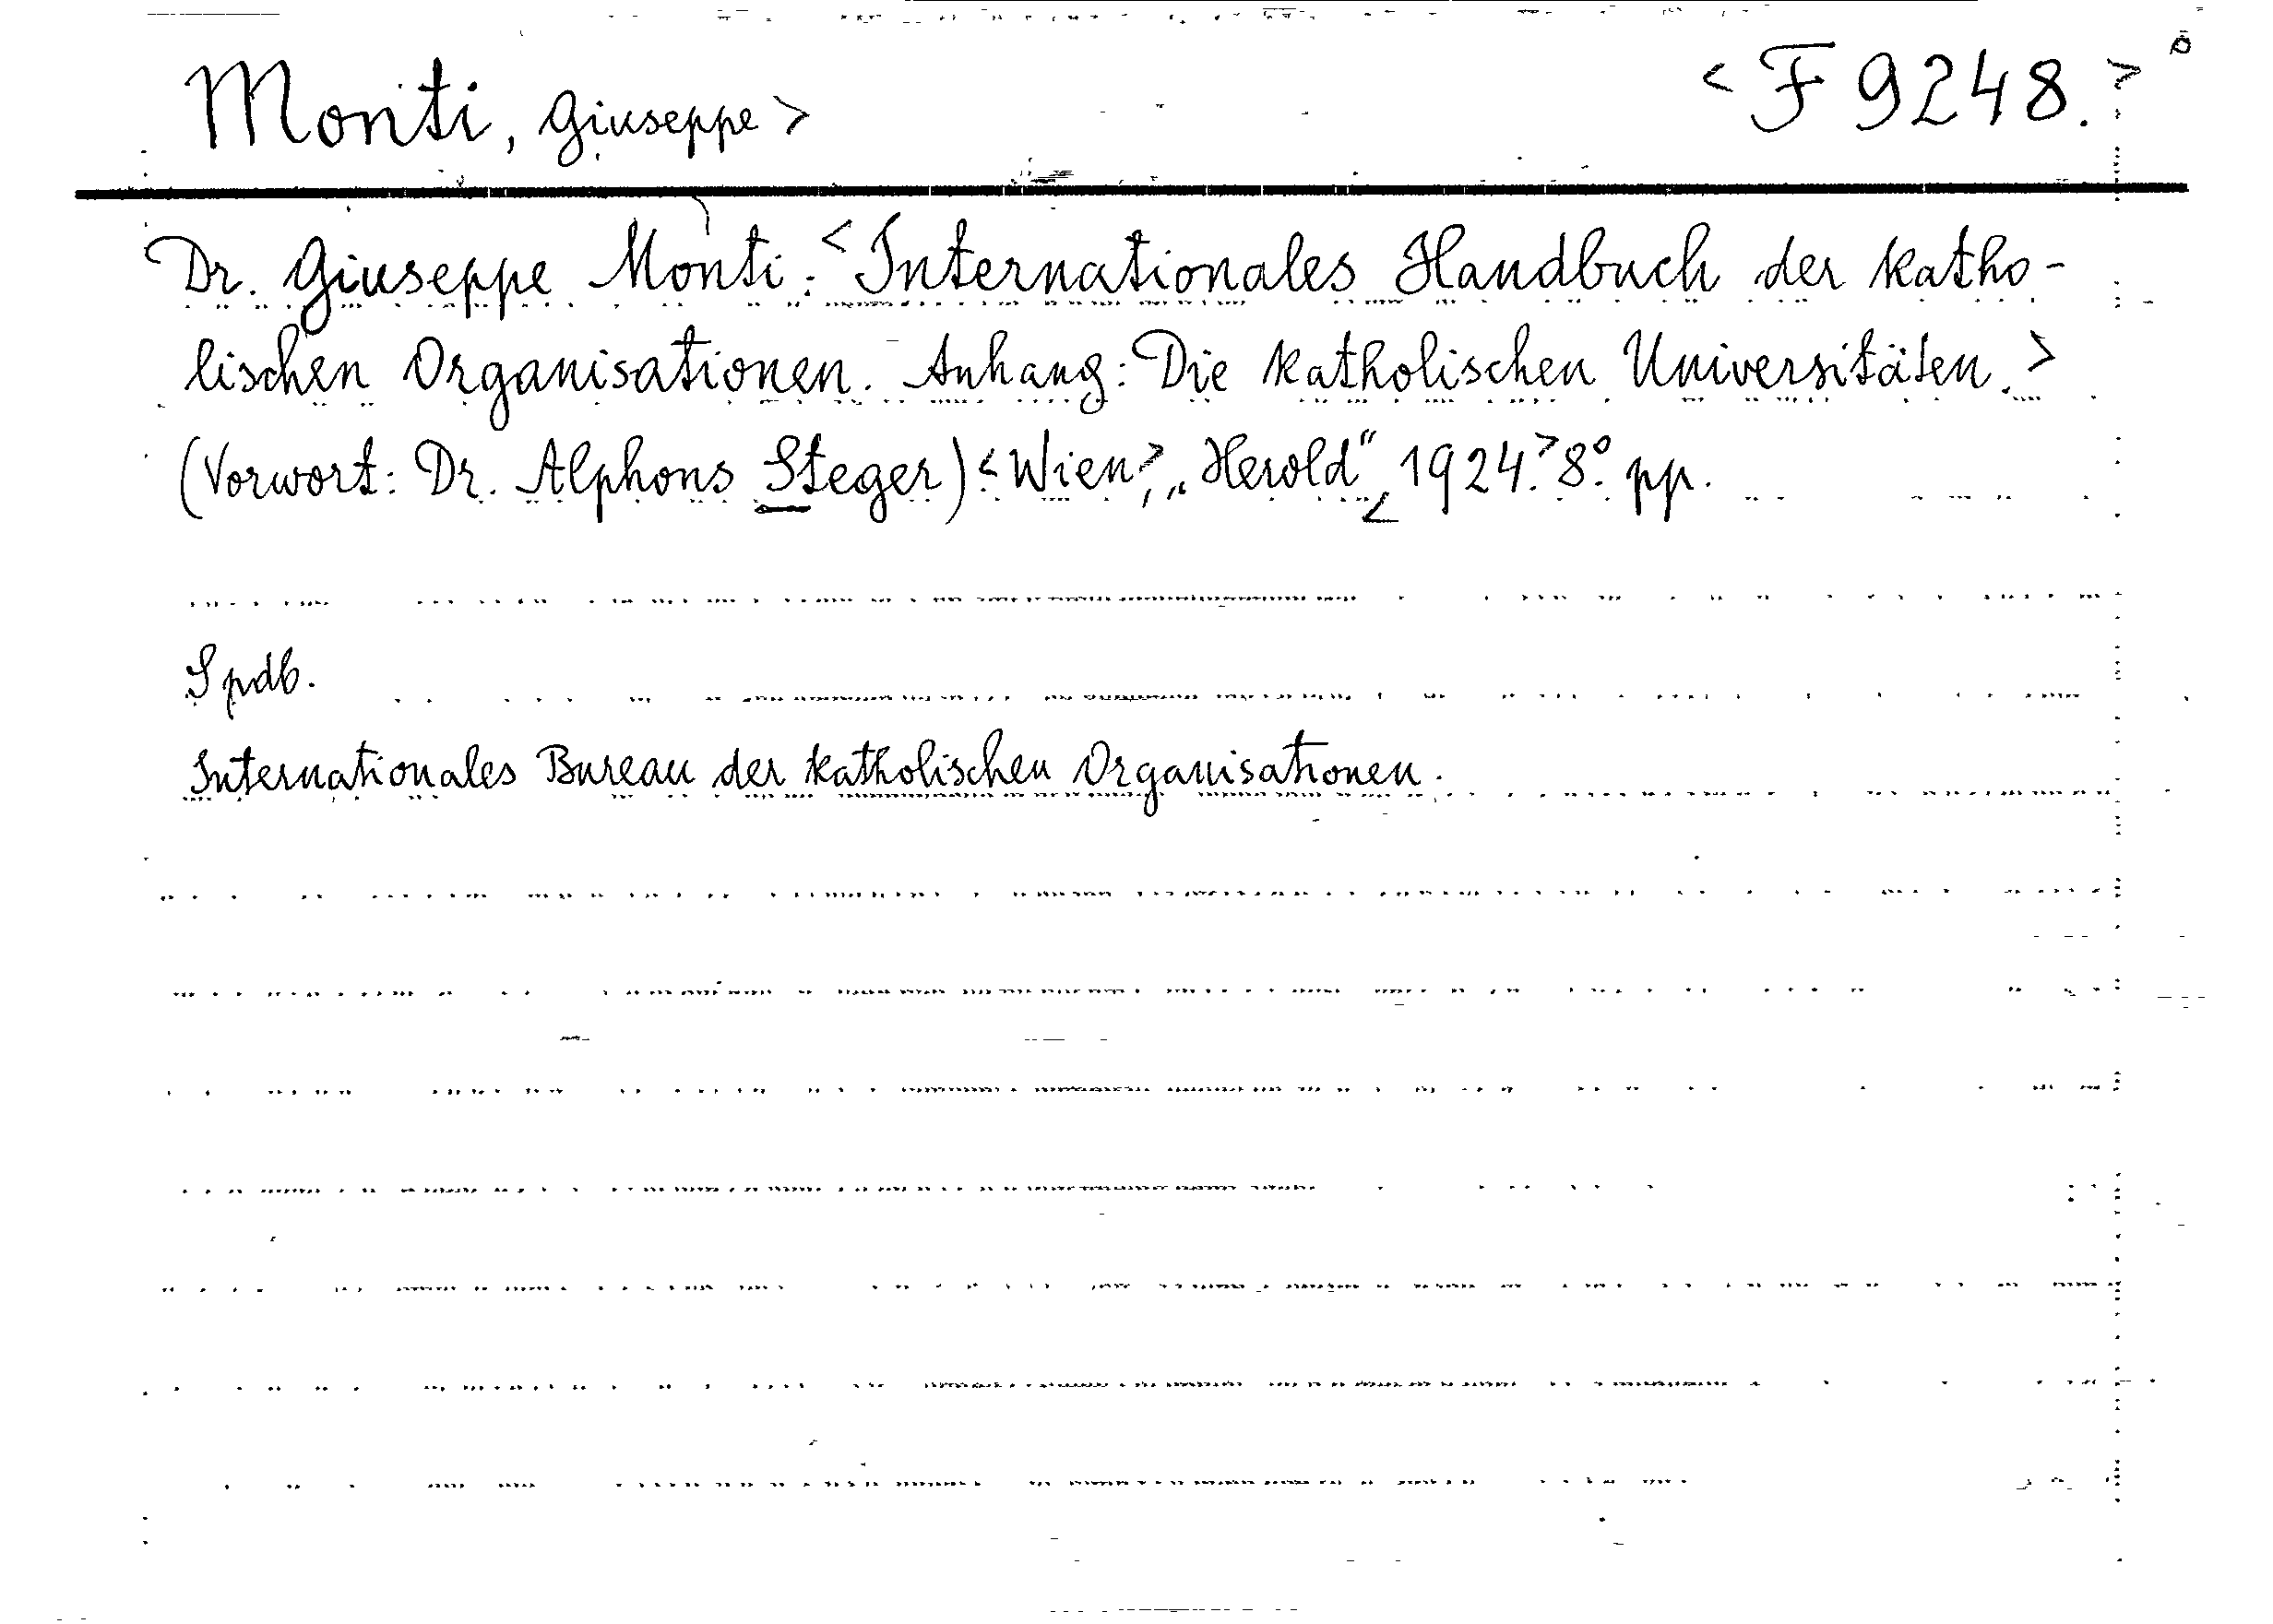 Monti, Giuseppe> <F 9248.>
Dr. Giuseppe Monti: <Internationales Handbuch der katho-
lischen Organisationen. Anhang: Die katholischen Universitäten.>
(Vorwort: Dr. Alphons Steger) <Wien>, „Herold“ <1924.> 8° pp.
Spdb.
Internationales Bureau der katholischen Organisationen.